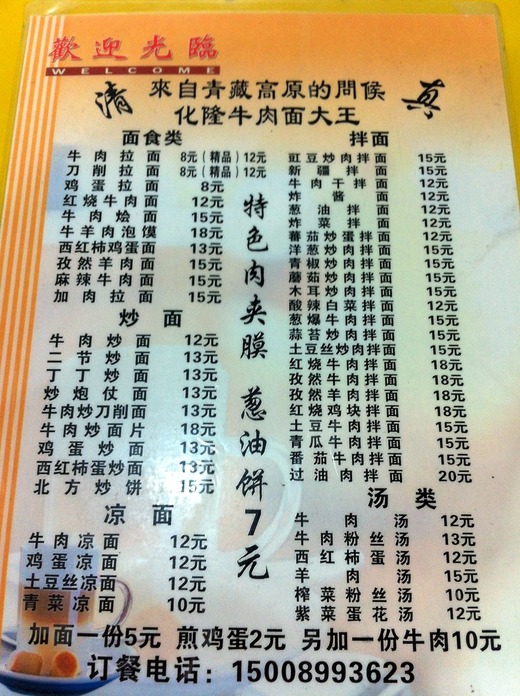 歡迎光臨
WELCOME
清 真
來自青藏高原的問候
化隆牛肉面大王
面食类
牛肉拉面 8元(精品)12元
刀削拉面 8元(精品)12元
鸡蛋拉面 8元
红烧牛肉面 12元
牛肉烩面 15元
牛羊肉泡馍 18元
西红柿鸡蛋面 13元
孜然羊肉面 15元
麻辣牛肉面 15元
加肉拉面 15元
炒面
牛肉炒面 12元
二节炒面 13元
丁丁炒面 13元
炒炮仗面 13元
牛肉炒刀削面 13元
牛肉炒面片 18元
鸡蛋炒面 13元
西红柿蛋炒面 13元
北方炒饼 15元
凉面
牛肉凉面 12元
鸡蛋凉面 12元
土豆丝凉面 12元
青菜凉面 10元
特色肉夹膜 葱油饼7元
拌面
豇豆炒肉拌面 15元
新疆拌面 15元
牛肉干拌面 12元
炸酱面 12元
葱油拌面 12元
炸菜拌面 12元
蕃茄炒蛋拌面 12元
洋葱炒肉拌面 15元
青椒炒肉拌面 15元
蘑菇炒肉拌面 15元
木耳炒肉拌面 15元
酸辣白菜拌面 12元
葱爆牛肉拌面 15元
蒜苔炒肉拌面 15元
土豆丝炒肉拌面 15元
红烧牛肉拌面 18元
孜然牛肉拌面 18元
孜然羊肉拌面 18元
红烧鸡块拌面 18元
土豆牛肉拌面 15元
青瓜牛肉拌面 15元
番茄牛肉拌面 15元
过油肉拌面 20元
汤类
牛肉汤 12元
牛肉粉丝汤 13元
西红柿蛋汤 12元
羊肉汤 15元
榨菜粉丝汤 10元
紫菜蛋花汤 12元
加面一份5元 煎鸡蛋2元 另加一份牛肉10元
订餐电话：15008993623